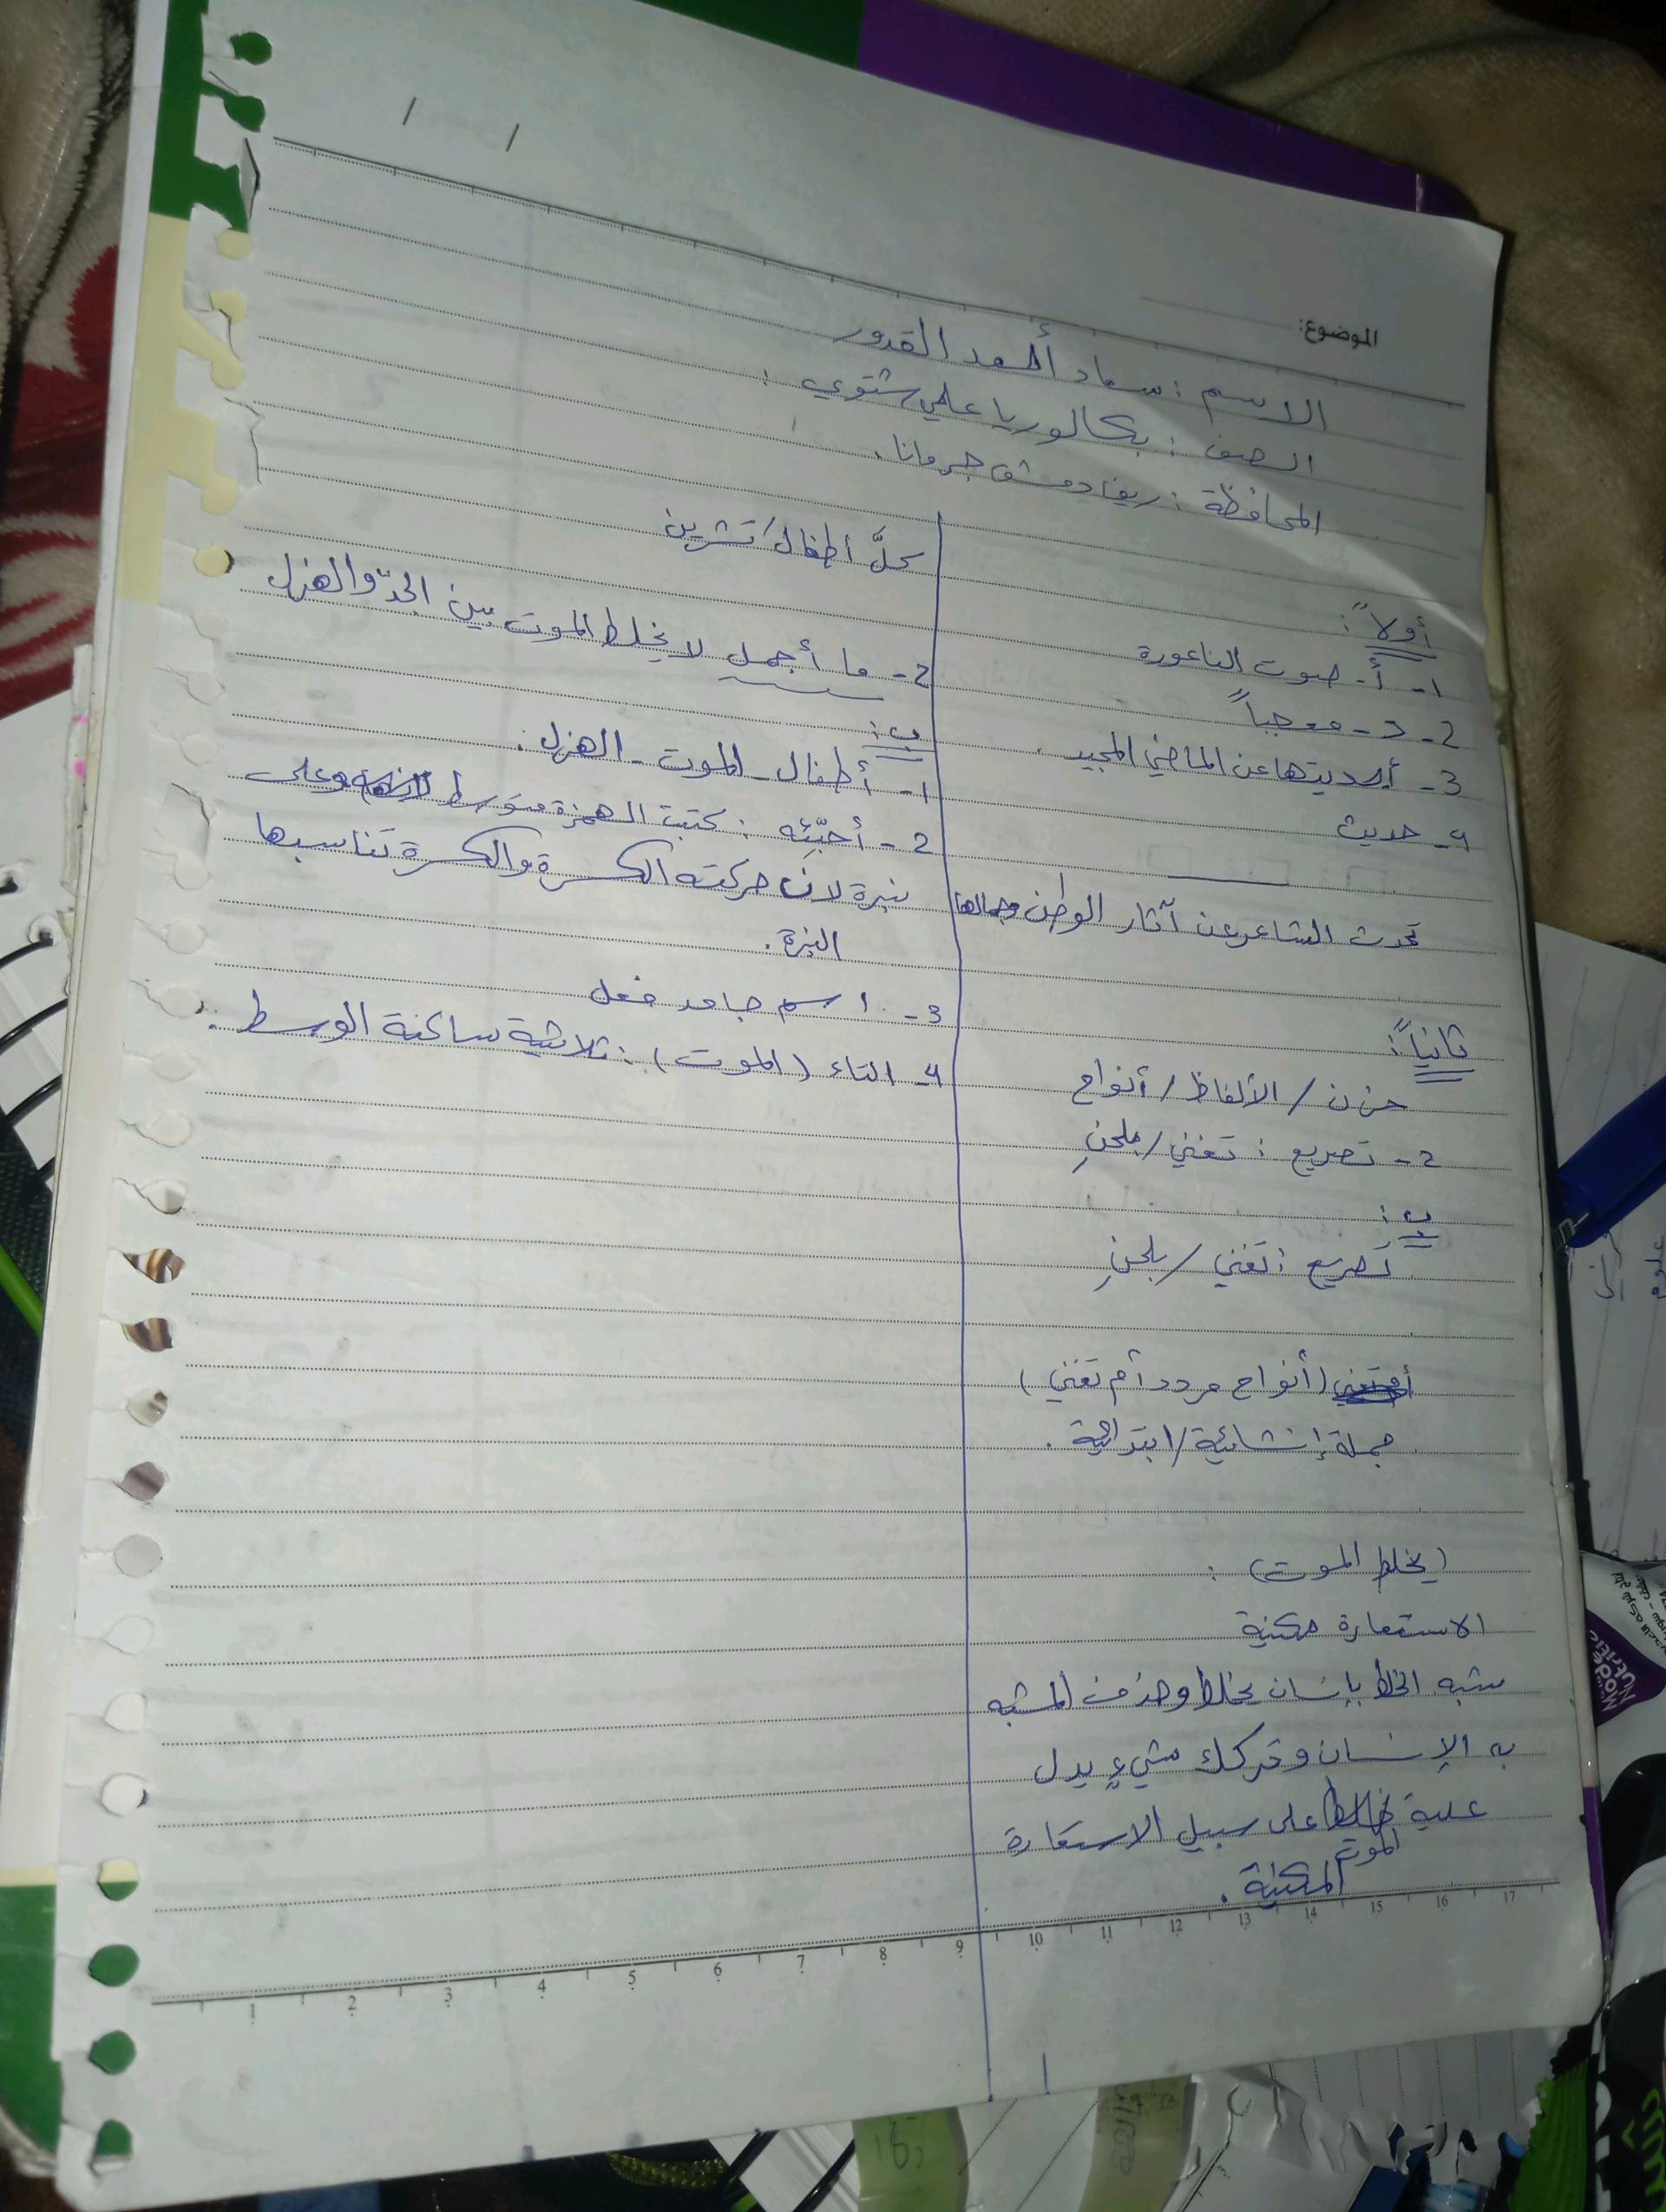 الموضوع:
الاسم : سعاد أحمد القدور
الصف : بكالوريا علمي شتوي :
المحافظة : ريف دمشق جرمانا .
أولاً :
1- أ- صوت الناعورة
2- د- معجباً
3- أ- حديثها عن الماضي المجيد .
4- حديث
تحدث الشاعر عن آثار الوطن وجمالها
ثانياً :
حزن / الألفاظ / أنواح
2- تصريع : تغني / بلحنِ
ب :
تصريع : تغني / بلحنِ
(أنواح مردد أم تغني)
جملة إنشائية / ابتدائية .
(يخلط الموت) :
الاستعارة مكنية
شبه الخلط بإنسان يخلط وحذف المشبه
به الإنسان وترك شيءٍ يدل
علية خالط على سبيل الاستعارة
الموت
المكنية .
كلَّ أطفال تشرين
2- ما أجمل لا يخلط الموت بين الجدّ والهزل
ب :
1- أطفال - الموت - الهزل .
2- أحبّئه : كتبت الهمزة متوسط وعلى
نبرة لان حركته الكسرة والكسرة تناسبها
النبرة .
3- اسم جامد فعل
4- التاء (الموت) : ثلاثية ساكنة الوسط .
1 2 3 4 5 6 7 8 9 10 11 12 13 14 15 16 17